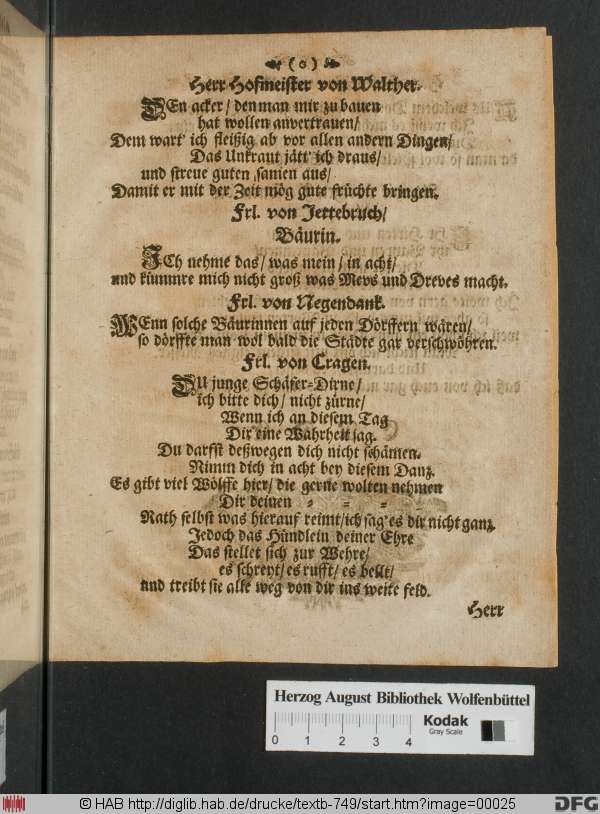 ( o )
Herr Hofmeister von Walther.
DEn acker/ den man mir zu bauen
hat wollen anvertrauen/
Dem wart' ich fleißig ab vor allen andern Dingen/
Das Unkraut jätt' ich draus/
und streue guten samen aus/
Damit er mit der Zeit mög gute früchte bringen.
Frl. von Jettebruch/
Bäurin.
ICh nehme das/ was mein/ in acht/
und kümmre mich nicht groß was Mevs und Dreves macht.
Frl. von Negendank.
WEnn solche Bäurinnen auf jeden Dörffern wären/
so dörffte man wol bald die Städte gar verschwöhren.
Frl. von Cragen.
DU junge Schäfer-Dirne/
ich bitte dich/ nicht zürne/
Wenn ich an diesem Tag
Dir eine Wahrheit sag.
Du darfst deßwegen dich nicht schämen.
Nimm dich in acht bey diesem Danz.
Es gibt viel Wölffe hier/ die gerne wolten nehmen
Dir deinen = = =
Rath selbst was hierauf reimt/ ich sag' es dir nicht ganz.
Jedoch das Hündlein deiner Ehre
Das stellet sich zur Wehre/
es schreyt/ es rufft/ es bellt/
und treibt sie alle weg von dir ins weite feld.
Herr
Herzog August Bibliothek Wolfenbüttel
0 1 2 3 4
Kodak
Gray Scale
© HAB http://diglib.hab.de/drucke/textb-749/start.htm?image=00025
DFG